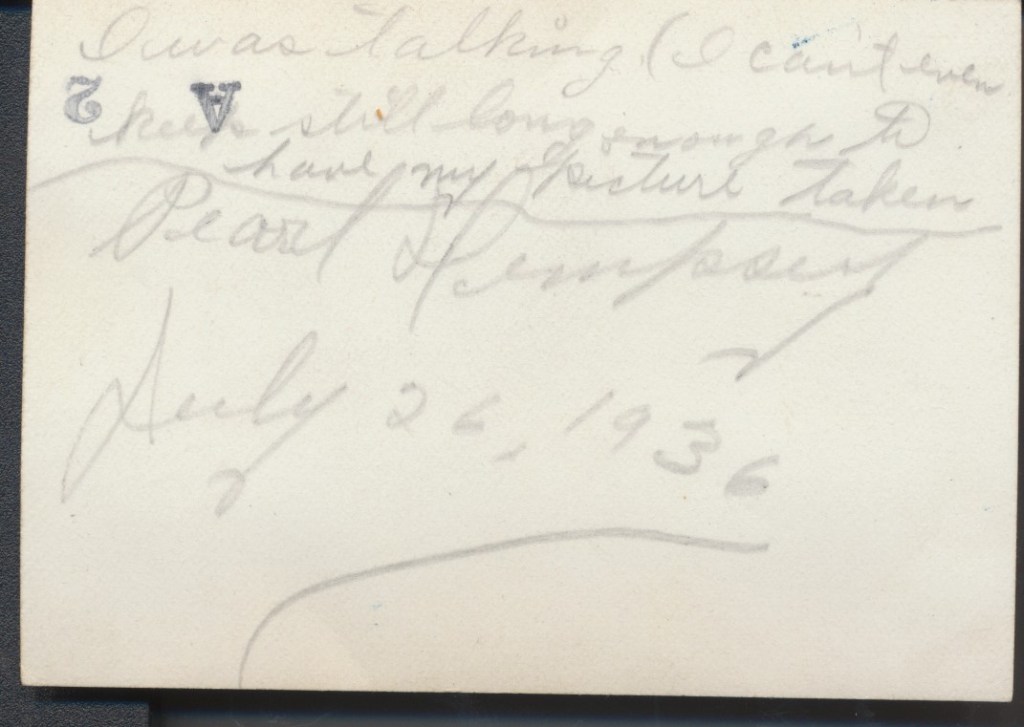 I was talking (I can't even
keep still long enough to
have my picture taken
Pearl Dempsey
July 26, 1936
A 2